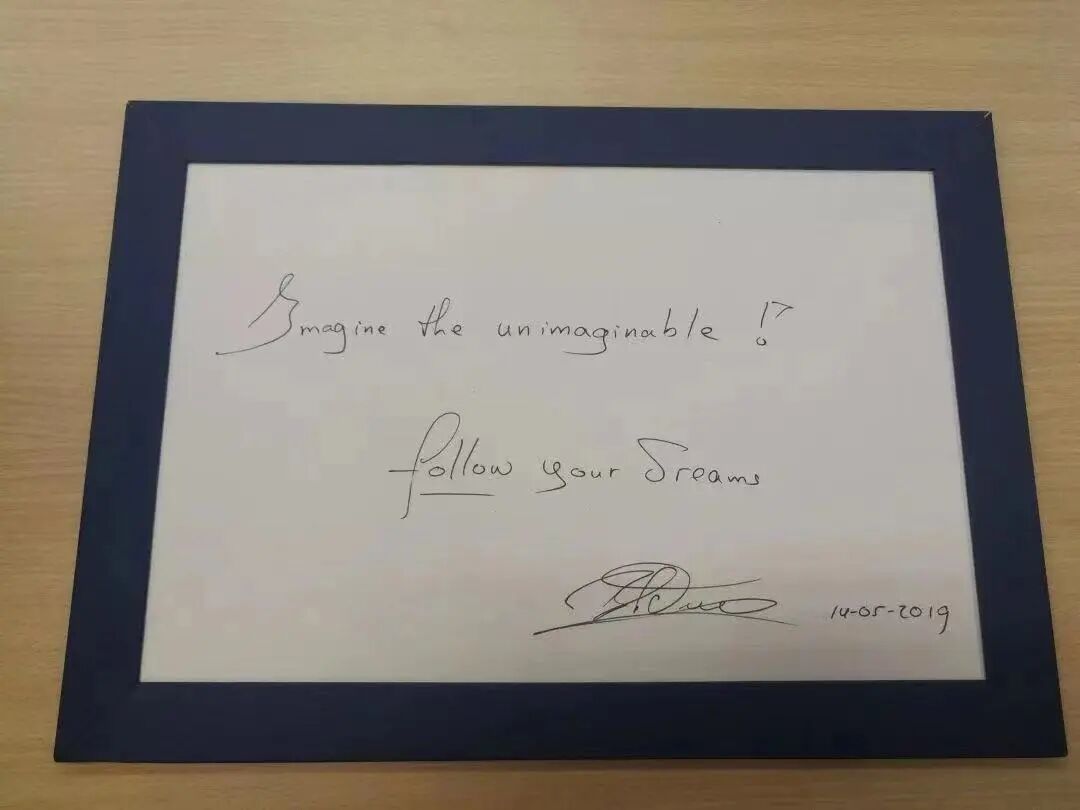 Imagine the unimaginable !?
follow your dreams
14-05-2019